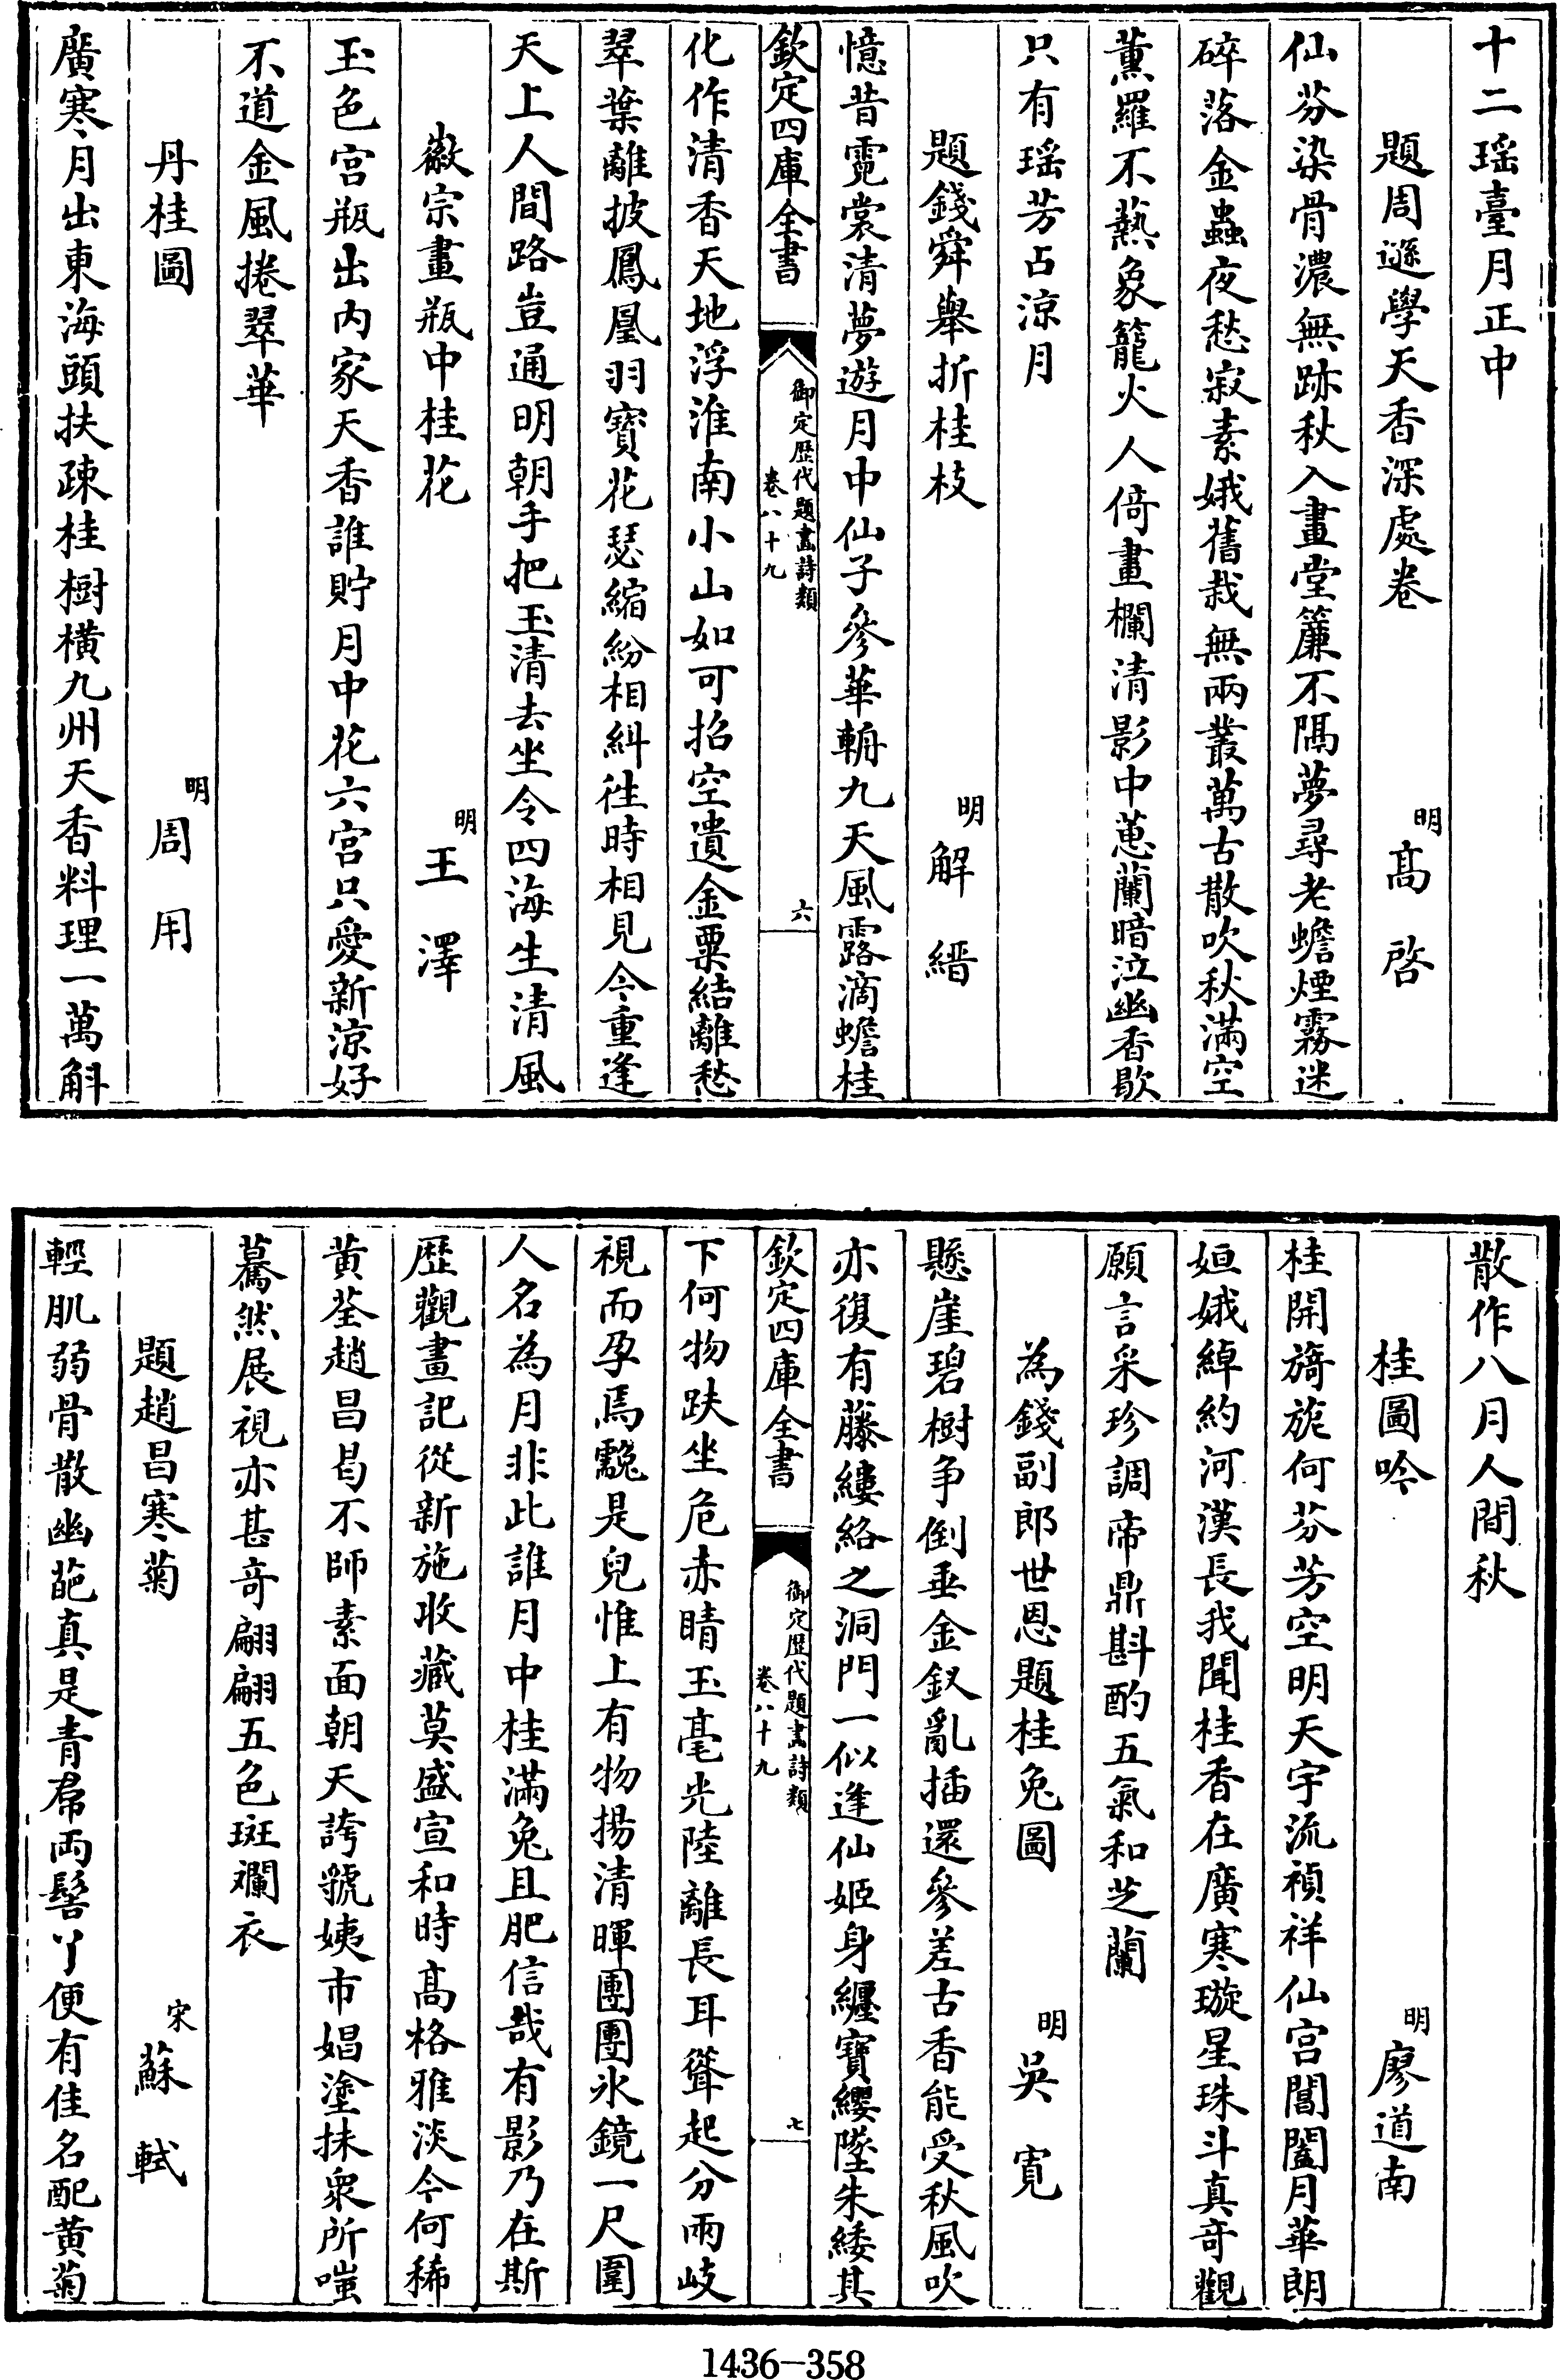 十二瑶臺月正中
題周遜學天香深處卷 明 髙啓
仙芬染骨濃無跡秋入畫堂簾不隔夢尋老蟾煙霧迷
碎落金蟲夜愁寂素娥舊栽無兩叢萬古散吹秋滿空
薫羅不爇象籠火人倚畫欄清影中蕙蘭暗泣幽香歇
只有瑶芳占涼月
題錢舜舉折桂枝 明 解縉
憶昔霓裳清夢遊月中仙子參華輈九天風露滴蟾桂
欽定四庫全書 御定歴代題畫詩類 卷八十九 六
化作清香天地浮淮南小山如可招空遺金粟結離愁
翠葉離披鳳凰羽寶花瑟縮紛相糾徃時相見今重逢
天上人間路豈通明朝手把玉清去坐令四海生清風
徽宗畫瓶中桂花 明 王澤
玉色宫瓶出内家天香誰貯月中花六宫只愛新涼好
不道金風捲翠華
丹桂圖 明 周用
廣寒月出東海頭扶疎桂樹橫九州天香料理一萬斛
散作八月人間秋
桂圖吟 明 廖道南
桂開旖旎何芬芳空明天宇流禎祥仙宫閶闔月華朗
姮娥綽約河漢長我聞桂香在廣寒璇星珠斗真竒觀
願言采珍調帝鼎斟酌五氣和芝蘭
為錢副郎世恩題桂兔圖 明 吳寛
懸崖碧樹争倒垂金釵亂插還參差古香能受秋風吹
亦復有藤縷絡之洞門一似逢仙姬身纒寶纓墜朱緌其
欽定四庫全書 御定歴代題畫詩類 卷八十九 七
下何物趺坐危赤睛玉毫光陸離長耳聳起分兩岐
視而孕焉䨲是兒惟上有物揚清暉團團氷鏡一尺圍
人名為月非此誰月中桂滿兔且肥信哉有影乃在斯
歴觀畫記從新施收藏莫盛宣和時髙格雅淡今何稀
黄荃趙昌曷不師素面朝天誇虢姨市娼塗抹衆所嗤
驀然展視亦甚竒翩翩五色斑斕衣
題趙昌寒菊 宋 蘇軾
輕肌弱骨散幽葩真是青帬兩髻丫便有佳名配黄菊
1436-358